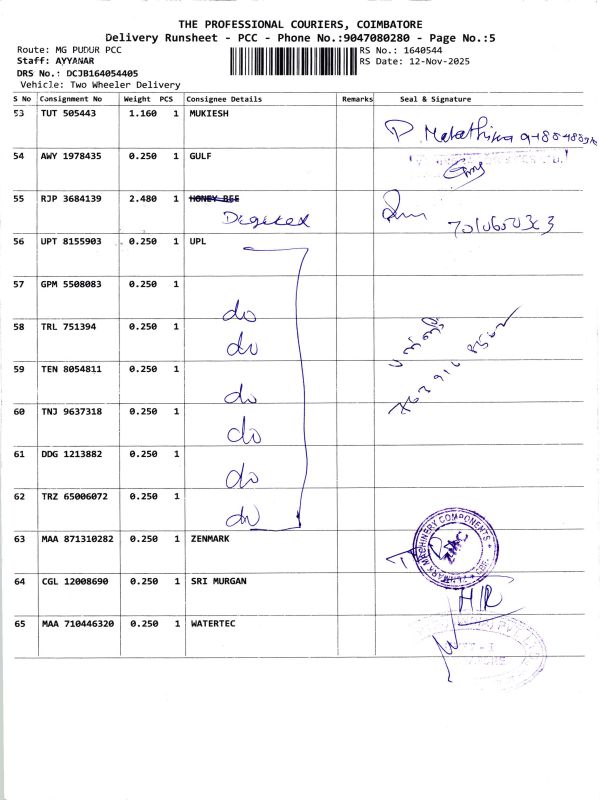 THE PROFESSIONAL COURIERS, COIMBATORE
Delivery Runsheet - PCC - Phone No.:9047080280 - Page No.:5
Route: MG PUDUR PCC
RS No.: 1640544
Staff: AYYANAR
RS Date: 12-Nov-2025
DRS No.: DCJB164054405
Vehicle: Two Wheeler Delivery
S No Consignment No Weight PCS Consignee Details Remarks Seal & Signature
53 TUT 505443 1.160 1 MUKIESH
54 AWY 1978435 0.250 1 GULF
55 RJP 3684139 2.480 1 HONEY BEE
56 UPT 8155903 0.250 1 UPL
57 GPM 5508083 0.250 1
do
58 TRL 751394 0.250 1
do
59 TEN 8054811 0.250 1
do
60 TNJ 9637318 0.250 1
do
61 DDG 1213882 0.250 1
do
62 TRZ 65006072 0.250 1
do
63 MAA 871310282 0.250 1 ZENMARK
ZENMARK MACHINERY COMPONENTS
64 CGL 12008690 0.250 1 SRI MURGAN
65 MAA 710446320 0.250 1 WATERTEC